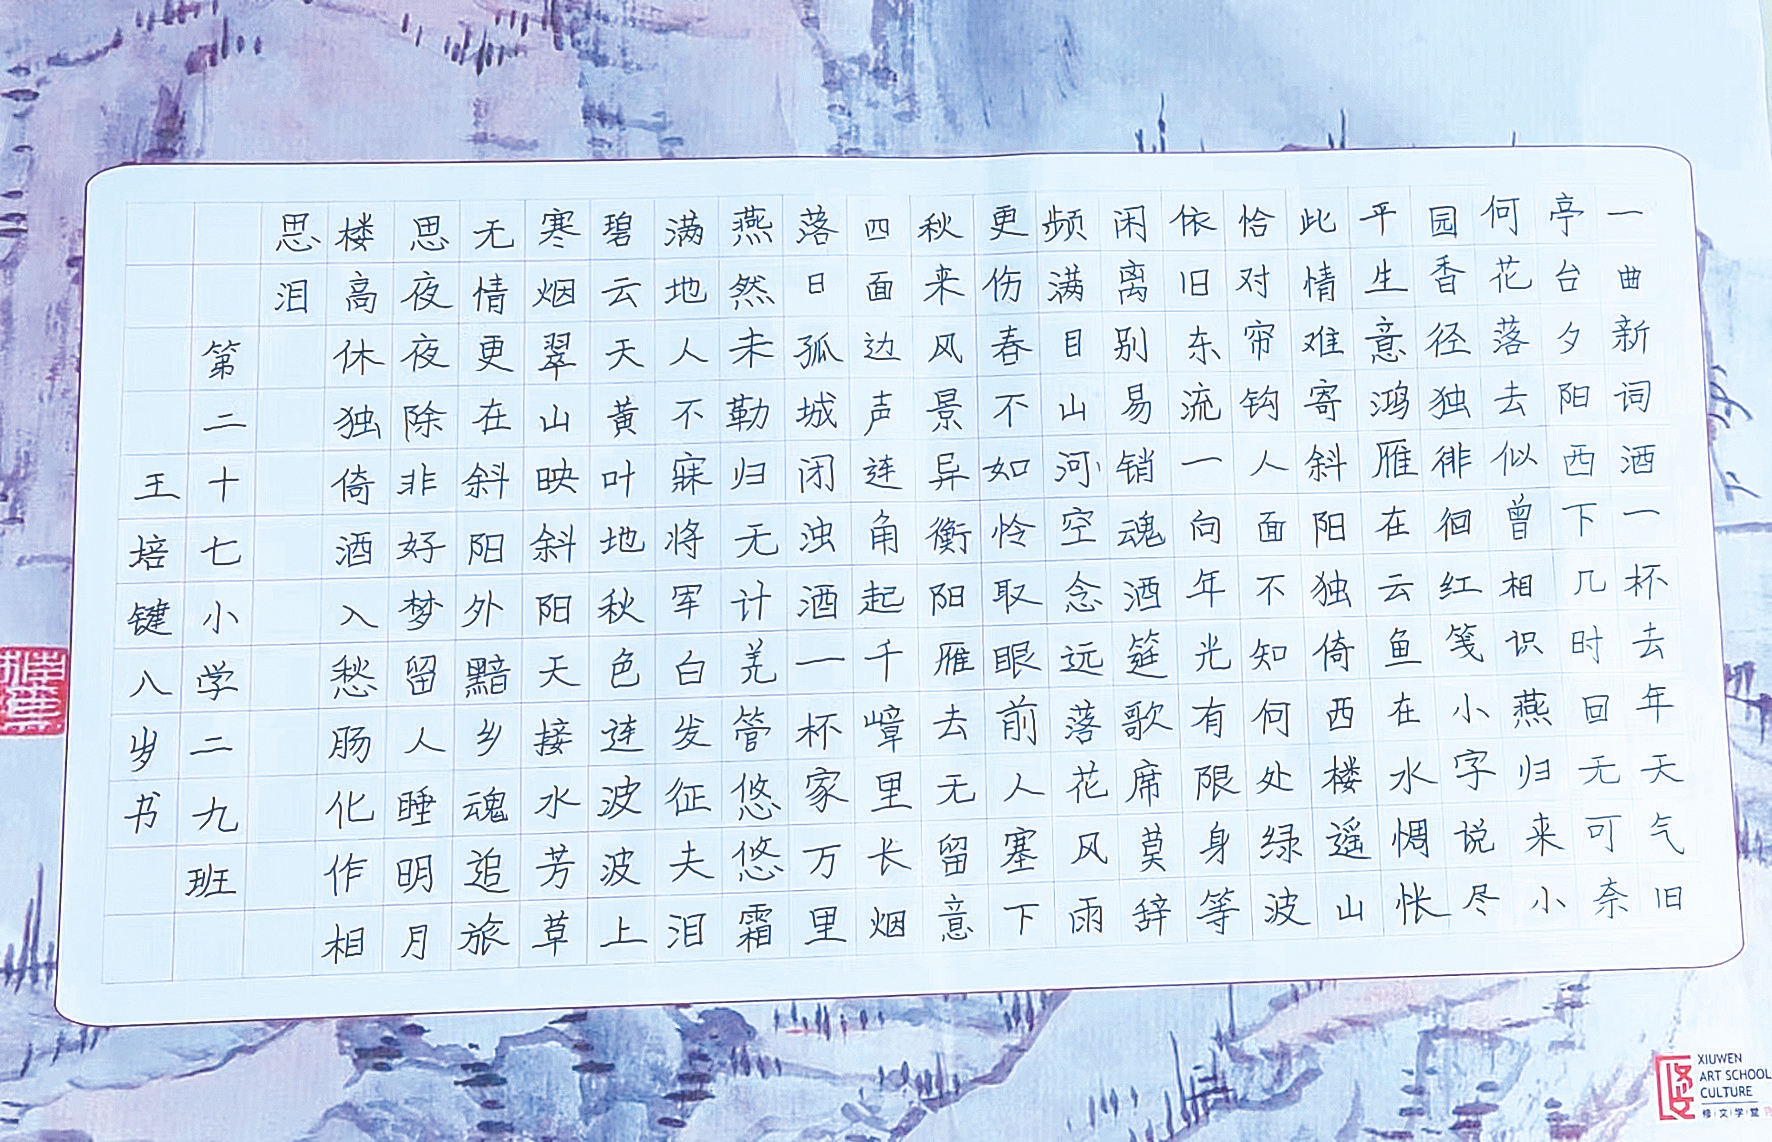 一曲新词酒一杯去年天气旧
亭台夕阳西下几时回无可奈
何花落去似曾相识燕归来小
园香径独徘徊红笺小字说尽
平生意鸿雁在云鱼在水惆怅
此情难寄斜阳独倚西楼遥山
恰对帘钩人面不知何处绿波
依旧东流一向年光有限身等
闲离别易销魂酒筵歌席莫辞
频满目山河空念远落花风雨
更伤春不如怜取眼前人塞下
秋来风景异衡阳雁去无留意
四面边声连角起千嶂里长烟
落日孤城闭浊酒一杯家万里
燕然未勒归无计羌管悠悠霜
满地人不寐将军白发征夫泪
碧云天黄叶地秋色连波波上
寒烟翠山映斜阳天接水芳草
无情更在斜阳外黯乡魂追旅
思夜夜除非好梦留人睡明月
楼高休独倚酒入愁肠化作相
思泪
第二十七小学二九班
王培键八岁书
XIUWEN
ART SCHOOL
CULTURE
修文学堂